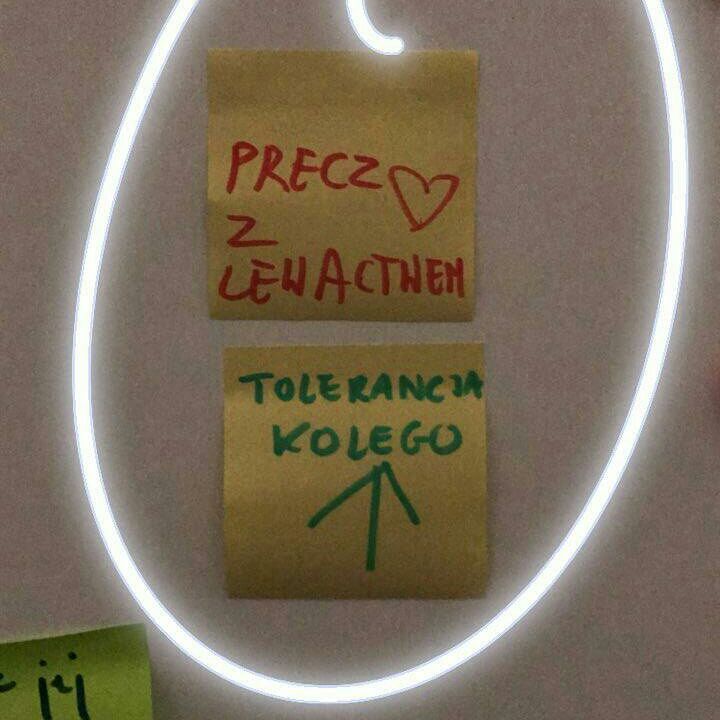 PRECZ ♡
Z
LEWACTWEM
TOLERANCJA
KOLEGO